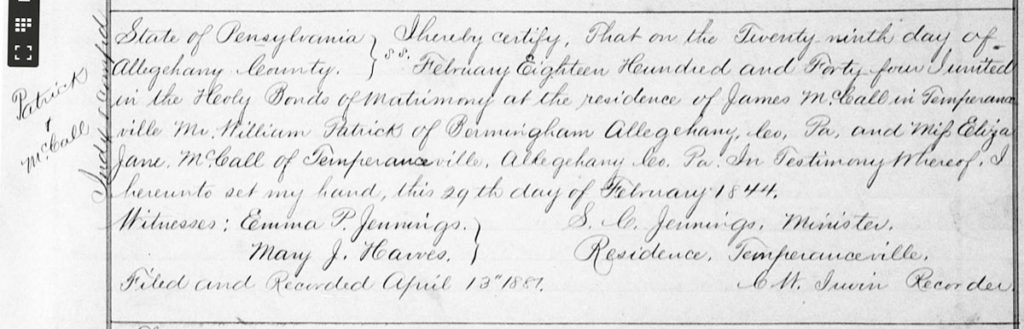 Patrick
+
McCall
Indexed
State of Pensylvania } S.S. I hereby certify, That on the Twenty ninth day of
Allegehany County. February Eighteen Hundred and Forty four I united
in the Holy Bonds of Matrimony at the residence of James McCall in Temperance
ville Mr. William Patrick of Bermingham Allegehany, Co. Pa. and Miss Eliza
Jane. McCall of Temperanceville, Allegehany Co. Pa. In Testimony Whereof, I
hereunto set my hand, this 29th day of February 1844.
Witnesses; Emma P. Jennings. } S. C. Jennings, Minister.
Mary J. Harves. Residence, Temperanceville,
Filed and Recorded April 13" 1881. C W. Irwin Recorder